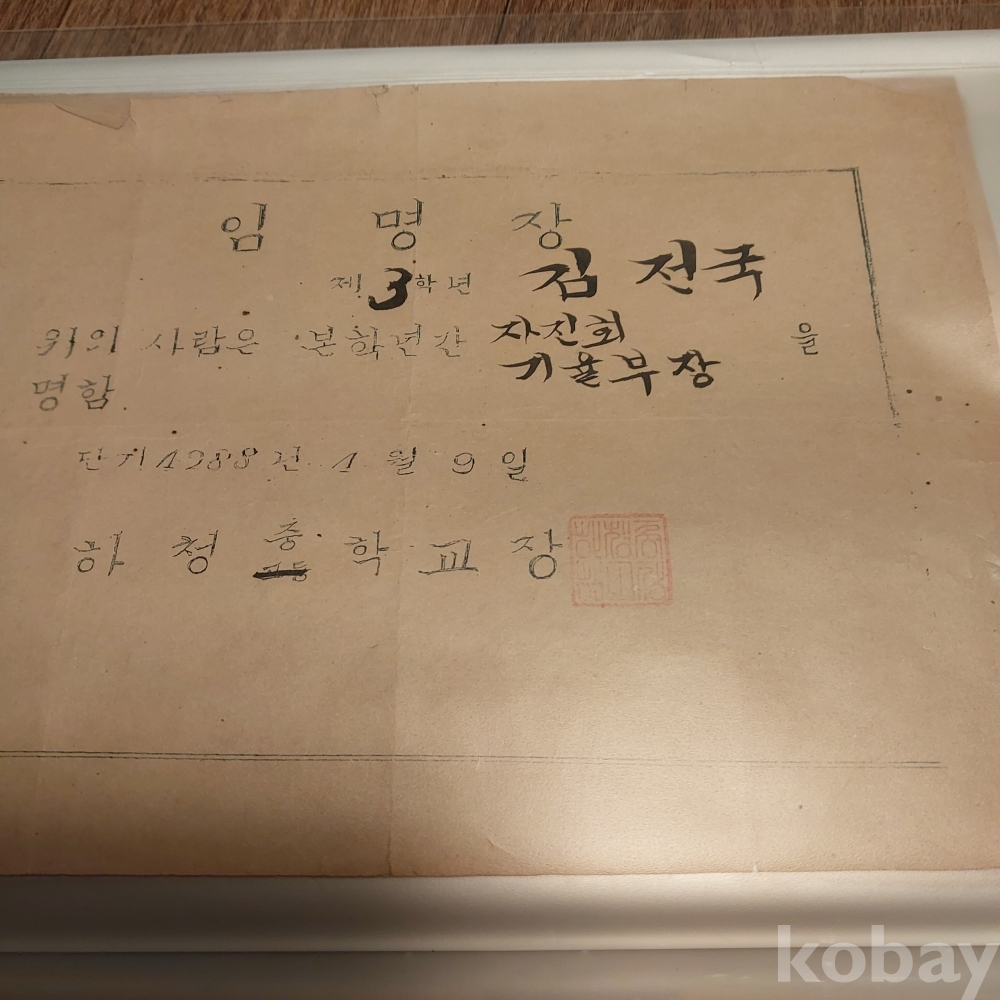 임 명 장
제 3 학년 김 전국
위의 사람은 본학년간 자진회 을
기율부장
명함
단기 4288년 4월 9일
하 청 중 학 교 장
고등
kobay